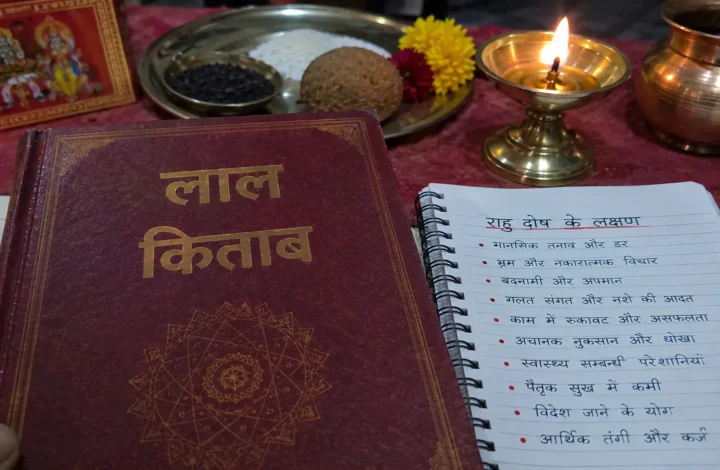 लाल
किताब
राहु दोष के लक्षण
• मानसिक तनाव और डर
• भ्रम और नकारात्मक विचार
• बदनामी और अपमान
• गलत संगत और नशे की आदत
• काम में रुकावट और असफलता
• अचानक नुकसान और धोखा
• स्वास्थ्य सम्बन्धी परेशानियां
• पैतृक सुख में कमी
• विदेश जाने के योग
• आर्थिक तंगी और कर्ज